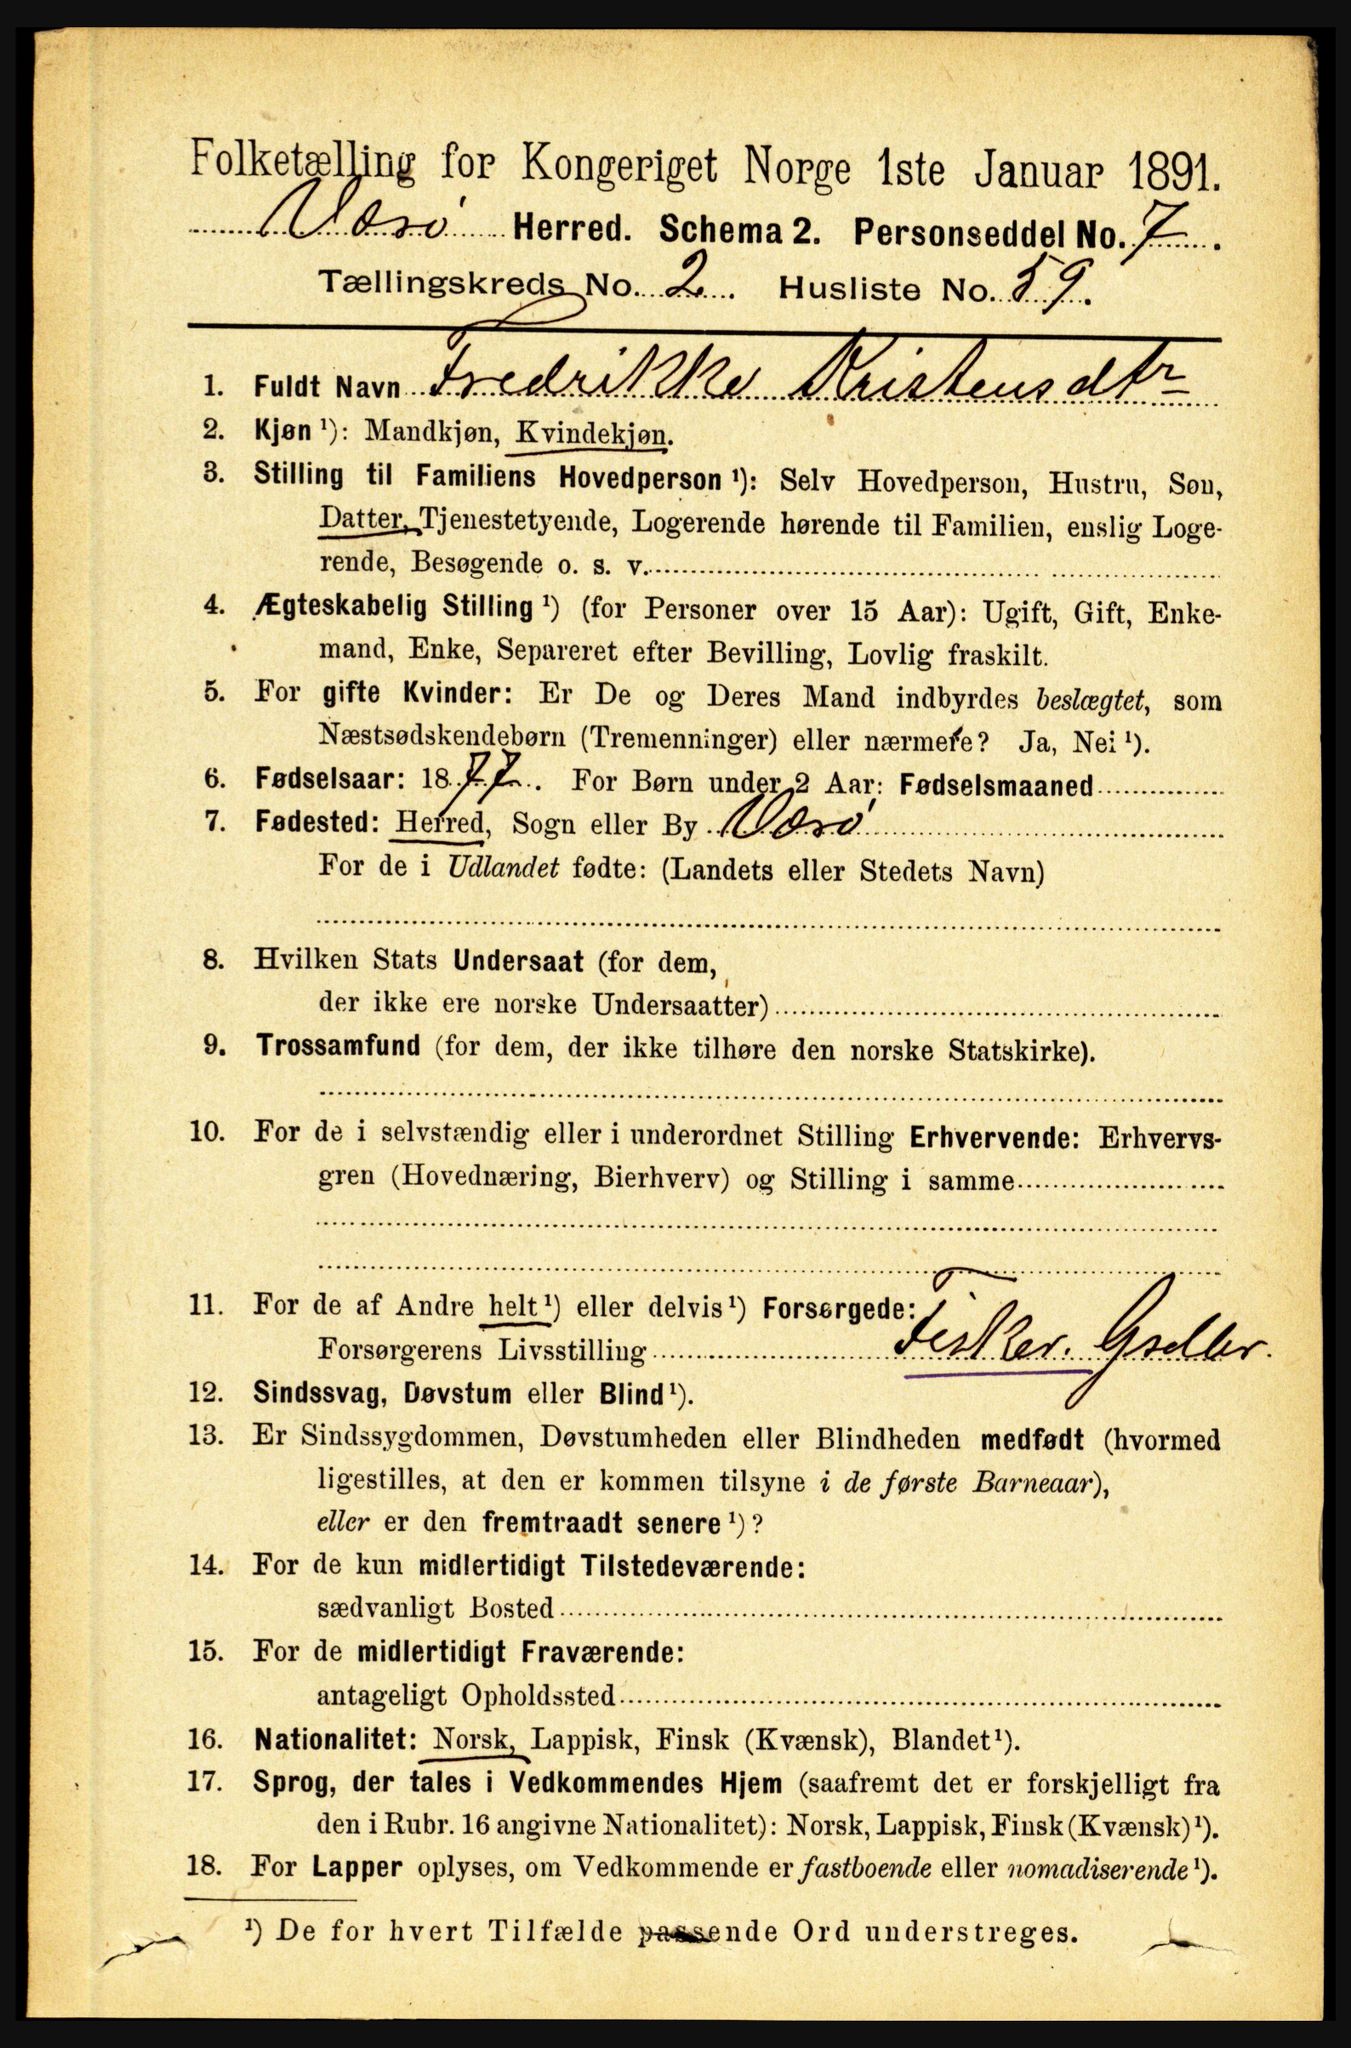 Folketælling for Kongeriget Norge 1ste Januar 1891.
Værø Herred. Schema 2. Personseddel No. 7.
Tællingskreds No. 2. Husliste No. 59.
1. Fuldt Navn Fredrikke Kristensdtr
2. Kjøn ¹): Mandkjøn, Kvindekjøn.
3. Stilling til Familiens Hovedperson ¹): Selv Hovedperson, Hustru, Søn,
Datter, Tjenestetyende, Logerende hørende til Familien, enslig Loge-
rende, Besøgende o. s. v.
4. Ægteskabelig Stilling ¹) (for Personer over 15 Aar): Ugift, Gift, Enke-
mand, Enke, Separeret efter Bevilling, Lovlig fraskilt.
5. For gifte Kvinder: Er De og Deres Mand indbyrdes beslægtet, som
Næstsødskendebørn (Tremenninger) eller nærmere? Ja, Nei ¹).
6. Fødselsaar: 1877. For Børn under 2 Aar: Fødselsmaaned
7. Fødested: Herred, Sogn eller By Værø
For de i Udlandet fødte: (Landets eller Stedets Navn)
8. Hvilken Stats Undersaat (for dem,
der ikke ere norske Undersaatter)
9. Trossamfund (for dem, der ikke tilhøre den norske Statskirke).
10. For de i selvstændig eller i underordnet Stilling Erhvervende: Erhvervs-
gren (Hovednæring, Bierhverv) og Stilling i samme
11. For de af Andre helt ¹) eller delvis ¹) Forsørgede:
Forsørgerens Livsstilling Fisker.
12. Sindssvag, Døvstum eller Blind ¹).
13. Er Sindssygdommen, Døvstumheden eller Blindheden medfødt (hvormed
ligestilles, at den er kommen tilsyne i de første Barneaar),
eller er den fremtraadt senere ¹)?
14. For de kun midlertidigt Tilstedeværende:
sædvanligt Bosted
15. For de midlertidigt Fraværende:
antageligt Opholdssted
16. Nationalitet: Norsk, Lappisk, Finsk (Kvænsk), Blandet ¹).
17. Sprog, der tales i Vedkommendes Hjem (saafremt det er forskjelligt fra
den i Rubr. 16 angivne Nationalitet): Norsk, Lappisk, Finsk (Kvænsk) ¹).
18. For Lapper oplyses, om Vedkommende er fastboende eller nomadiserende ¹).
¹) De for hvert Tilfælde passende Ord understreges.